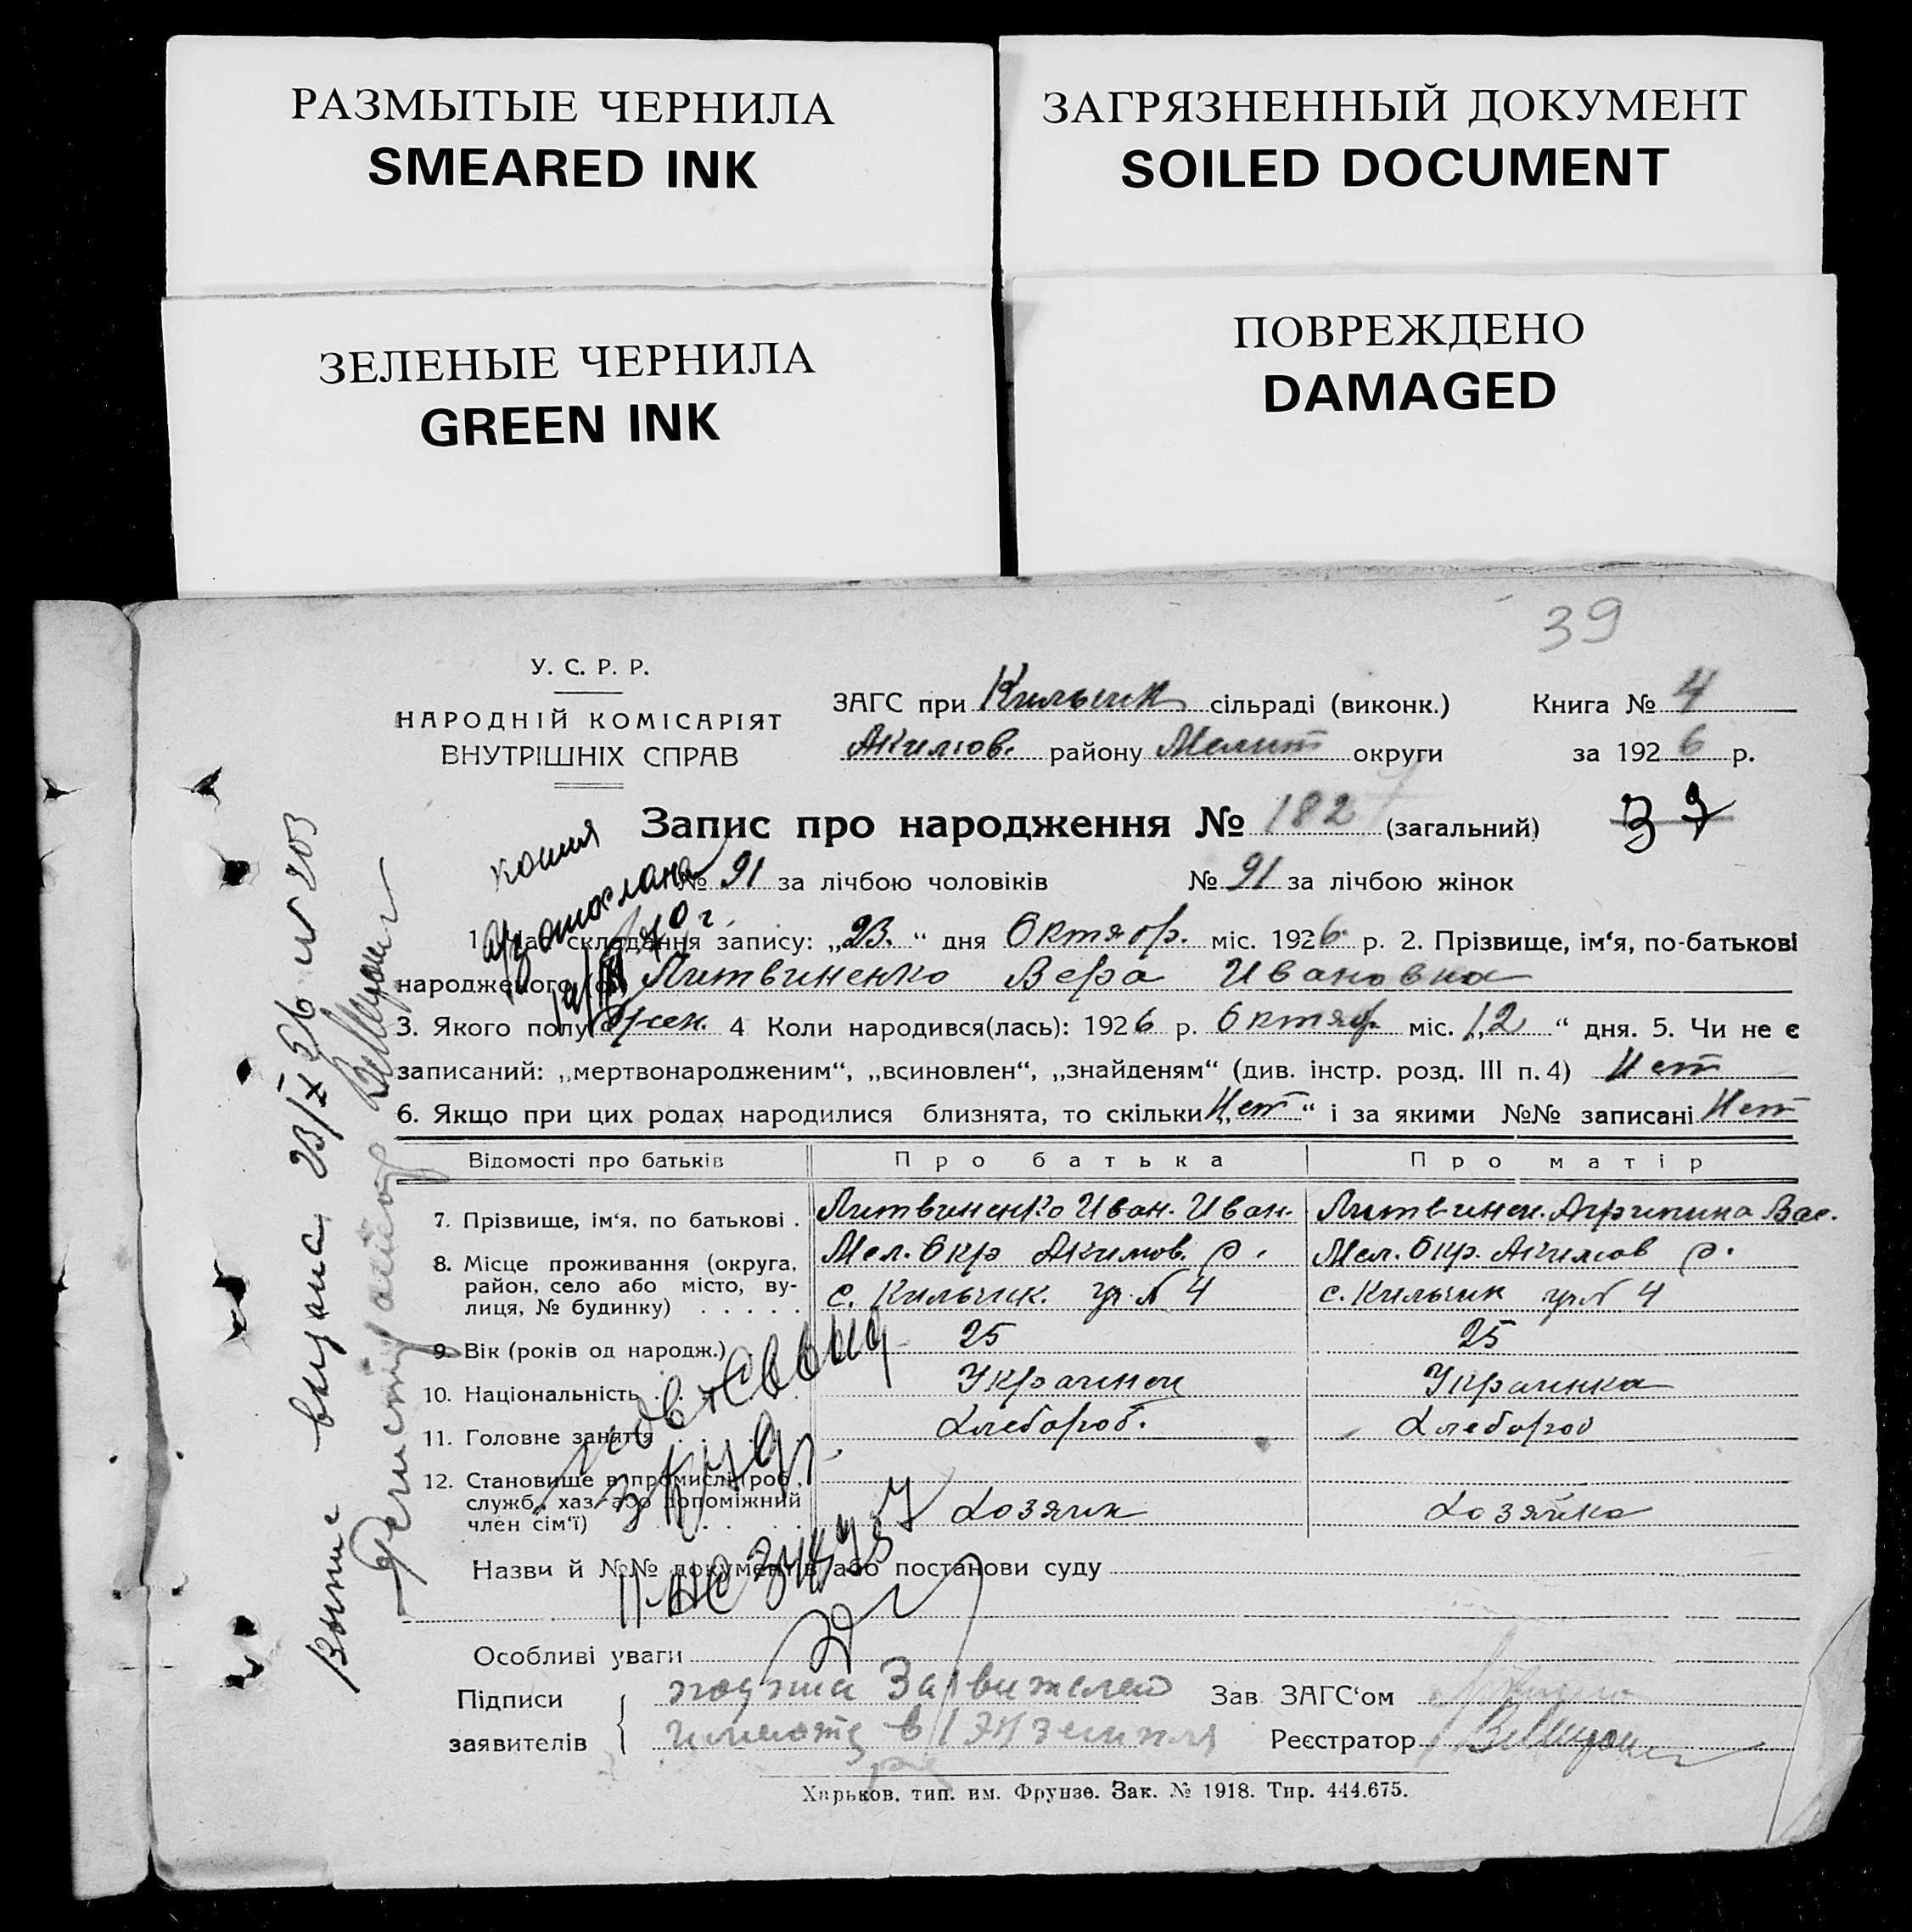 РАЗМЫТЫЕ ЧЕРНИЛА
SMEARED INK
ЗАГРЯЗНЕННЫЙ ДОКУМЕНТ
SOILED DOCUMENT
ЗЕЛЕНЫЕ ЧЕРНИЛА
GREEN INK
ПОВРЕЖДЕНО
DAMAGED
39
У. С. Р. Р.
НАРОДНІЙ КОМІСАРІЯТ
ВНУТРІШНІХ СПРАВ
ЗАГС при Кильчик сільраді (виконк.) Книга № 4
Акимов. району Мелит округи за 1926 р.
Запис про народження № 182 (загальний) 39
копия
№ 91 за лічбою чоловіків № 91 за лічбою жінок
1. складання запису: „23.“ дня Октябр. міс. 1926 р. 2. Прізвище, ім‘я, по-батькові
народженого Литвиненко Вера Ивановна
3. Якого полу жен. 4 Коли народився(лась): 1926 р. Октяб. міс. „12“ дня. 5. Чи не є
записаний: „мертвонародженим“, „всиновлен“, „знайденям“ (див. інстр. розд. III п. 4) Нет
6. Якщо при цих родах народилися близнята, то скільки „Нет“ і за якими №№ записані Нет
Відомості про батьків Про батька Про матір
7. Прізвище, ім‘я, по батькові . Литвиненко Иван. Иван. Литвинен. Агрипина Вас.
8. Місце проживання (округа, район, село або місто, ву-лиця, № будинку) . . . . . Мел. Окр Акимов. р. Мел. Окр. Акимов р.
с. Кильчик. № 4 с. Кильчик № 4
9. Вік (років од народж.) 25 25
10. Національність Украинец Украинка
11. Головне заняття Хлебороб. Хлебороб
12. Становище в промислі (роб., служб., хаз. або допоміжний член сім‘ї) Хозяин Хозяйка
Назви й №№ документів або постанови суду
Особливі уваги
Підписи заявителів
подписи Заявителей
имеются в 1 экземпля
Зав. ЗАГС‘ом
Реєстратор
Харьков. тип. им. Фрунзе. Зак. № 1918. Тир. 444.675.
выдана 23/X 26 № 203
Регистратор